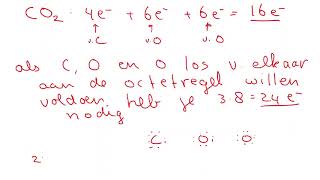 CO₂: 4e⁻ + 6e⁻ + 6e⁻ = 16e⁻
v.C v.O v.O
als C, O en O los v. elkaar
aan de octetregel willen
voldoen, heb je 3·8 = 24 e⁻
nodig
C O O
2